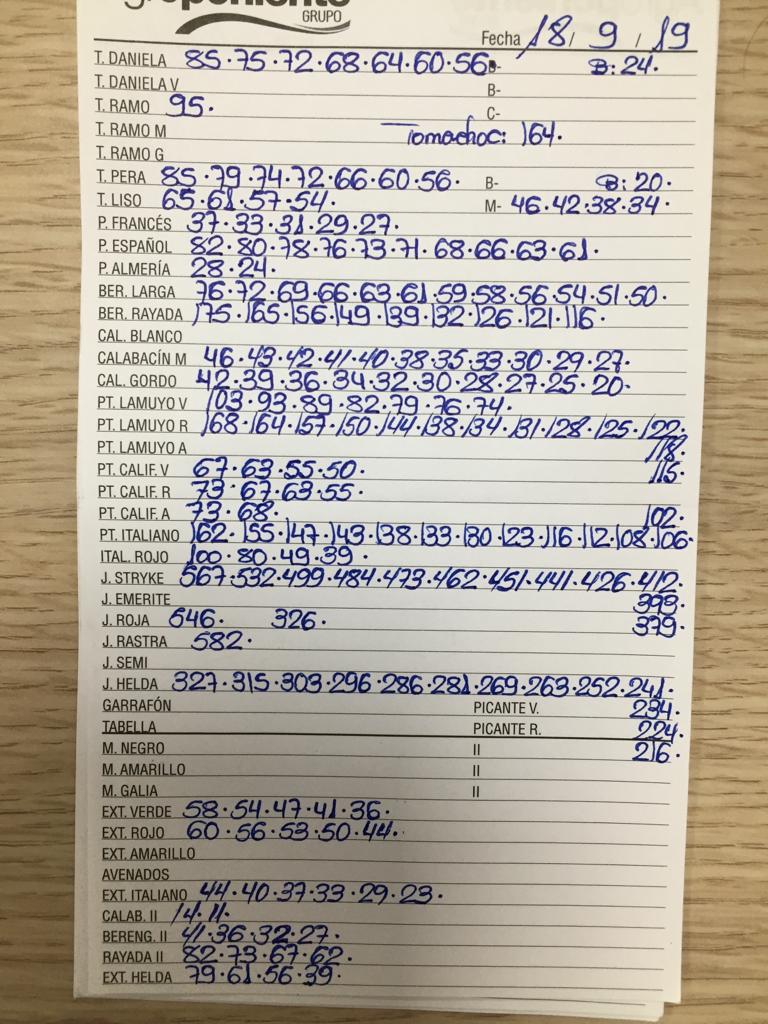 GRUPO
Fecha 18/ 9 / 19
T. DANIELA 85·75·72·68·64·60·56· B- B:24·
T. DANIELA V B-
T. RAMO 95· C-
T. RAMO M Tomachoc: 164·
T. RAMO G
T. PERA 85·79·74·72·66·60·56· B- B:20·
T. LISO 65·61·57·54· M- 46·42·38·34·
P. FRANCÉS 37·33·31·29·27·
P. ESPAÑOL 82·80·78·76·73·71·68·66·63·61·
P. ALMERÍA 28·24·
BER. LARGA 76·72·69·66·63·61·59·58·56·54·51·50·
BER. RAYADA 175·165·156·149·139·132·126·121·116·
CAL. BLANCO
CALABACÍN M 46·43·42·41·40·38·35·33·30·29·27·
CAL. GORDO 42·39·36·34·32·30·28·27·25·20·
PT. LAMUYO V 103·93·89·82·79·76·74·
PT. LAMUYO R 168·164·157·150·144·138·134·131·128·125·122·
PT. LAMUYO A 118·
PT. CALIF. V 67·63·55·50· 115·
PT. CALIF. R 73·67·63·55·
PT. CALIF. A 73·68· 102·
PT. ITALIANO 162·155·147·143·138·133·130·123·116·112·108·106·
ITAL. ROJO 100·80·49·39·
J. STRYKE 567·532·499·484·473·462·451·441·426·412·
J. EMERITE 393·
J. ROJA 646· 326· 379·
J. RASTRA 582·
J. SEMI
J. HELDA 327·315·303·296·286·281·269·263·252·241·
GARRAFÓN PICANTE V. 234·
TABELLA PICANTE R. 224·
M. NEGRO II 216·
M. AMARILLO II
M. GALIA II
EXT. VERDE 58·54·47·41·36·
EXT. ROJO 60·56·53·50·44·
EXT. AMARILLO
AVENADOS
EXT. ITALIANO 44·40·37·33·29·23·
CALAB. II 14·11·
BERENG. II 41·36·32·27·
RAYADA II 82·73·67·62·
EXT. HELDA 79·61·56·39·